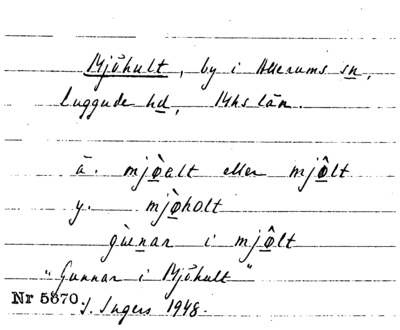 Mjöhult, by i Allerums sn,
Luggude hd, Mhs län.
ä. mjø̀alt eller mjø̂lt
y. mjø̀holt
gùnar i mjø̂lt
"Gunnar i Mjöhult"
Nr 5870. I. Ingers 1948.